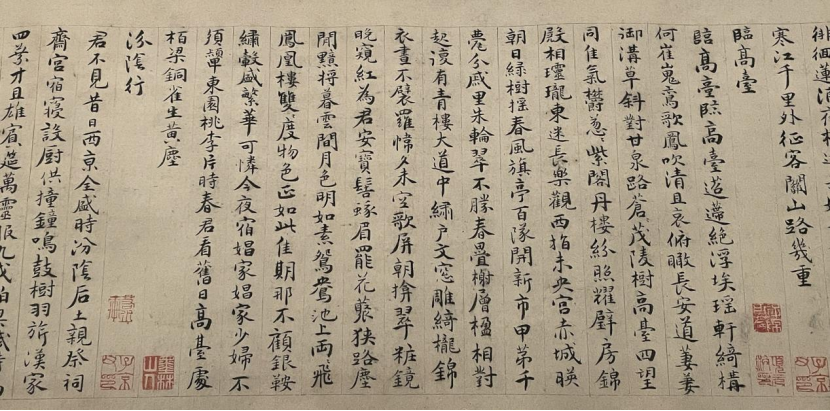 徘徊蓮浦夜相
寒江千里外征客關山路幾重
臨高臺
臨高臺臨高臺迢遞絕浮埃瑤軒綺構
何崔嵬鸞歌鳳吹清且哀俯瞰長安道萋萋
御溝草斜對甘泉路蒼茂陵樹高臺四望
同佳氣欝葱紫閣丹樓紛照耀璧房錦
殿相玲瓏東迷長樂觀西指未央宮赤城暎
朝日綠樹搖春風旗亭百隊開新市甲第千
甍分戚里朱輪翠不勝春疊榭層楹相對
起復有青樓大道中繡戶文窓雕綺櫳錦
衣晝不襞羅幃夕未空歌屏朝掩翠粧鏡
晚窺紅為君安寶髻蛾眉罷花叢狹路塵
間黯將暮雲間月色明如素鴛鴦池上兩飛
鳳凰樓雙度物色正如此佳期那不顧銀鞍
繡轂盛繁華可憐今夜宿娼家娼家少婦不
須顰東園桃李片時春君看舊日高臺處
栢梁銅雀生黃塵
汾陰行
君不見昔日西京全盛時汾陰后土親祭祠
齋宮宿寢設廚供撞鐘鳴鼓樹羽旂漢家
四葉才且雄賓筵萬靈服九戎柏梁賦詩高